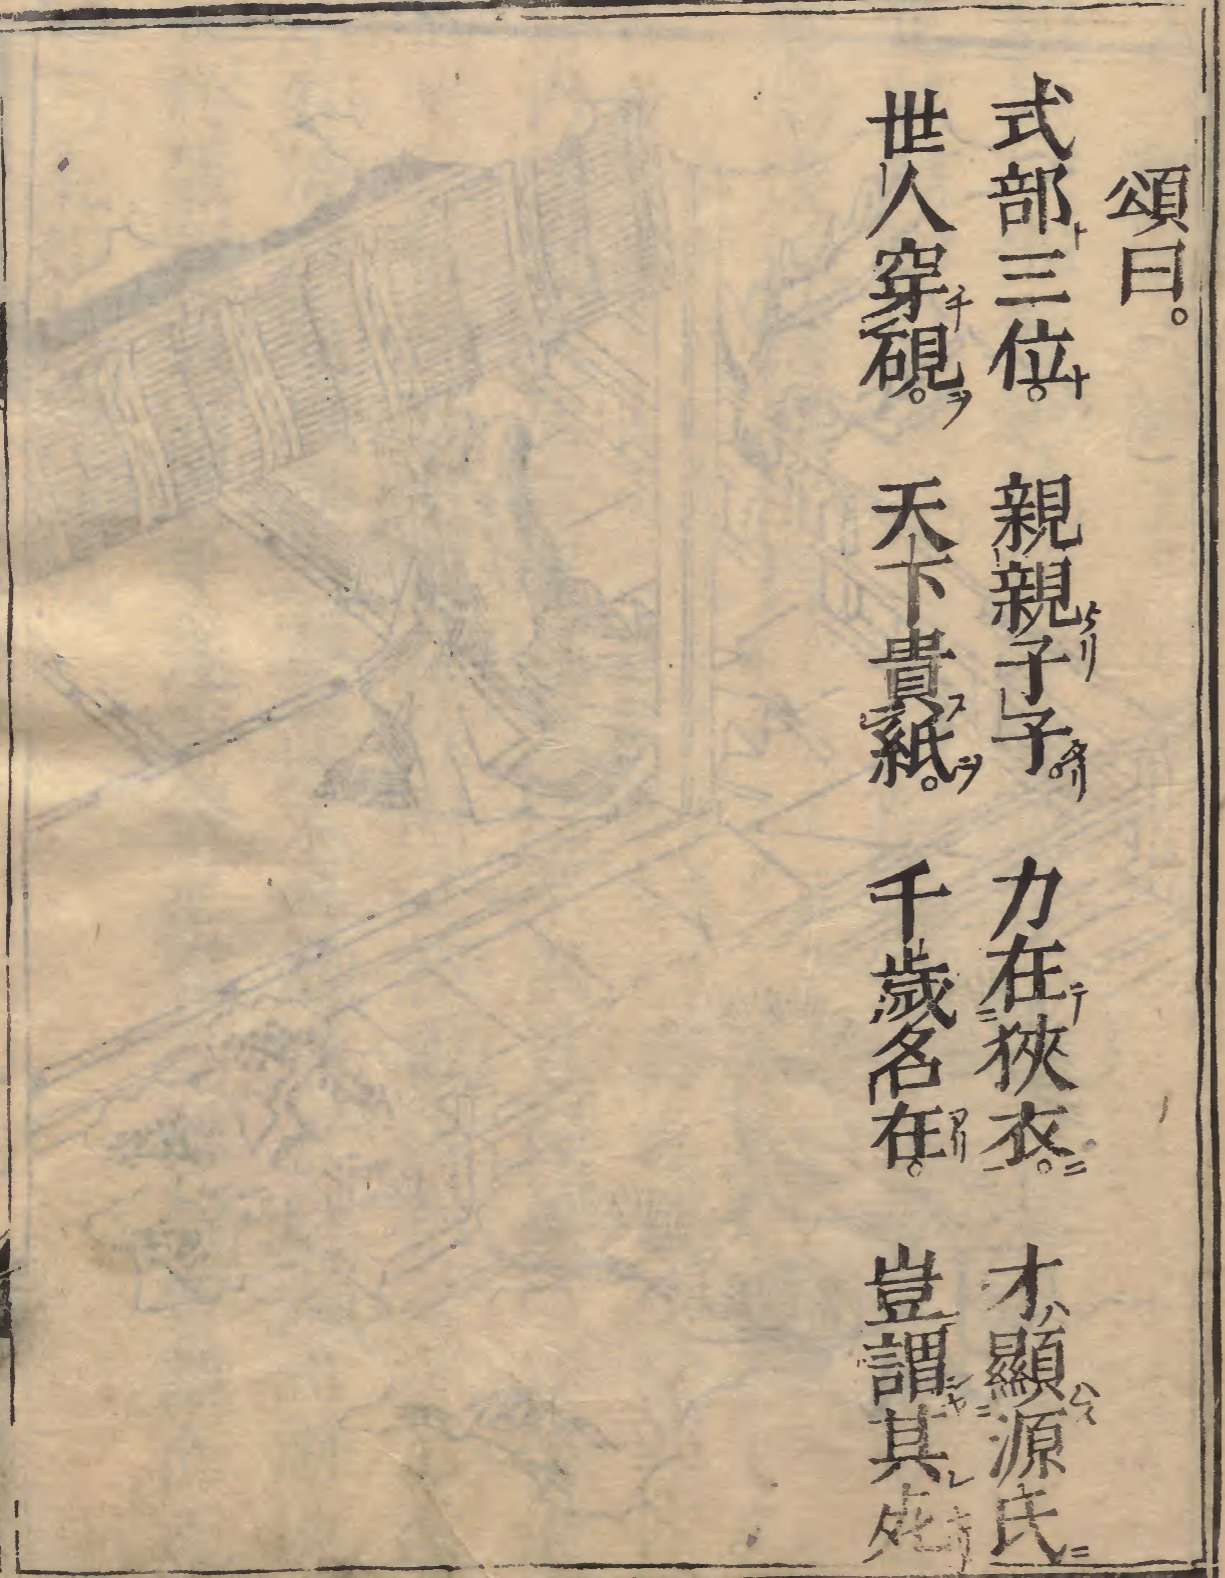 頌曰。
式部三位。親親子子。力在狹衣。才顯源氏
世人穿硯。天下貴紙。千歲名在。豈謂其死